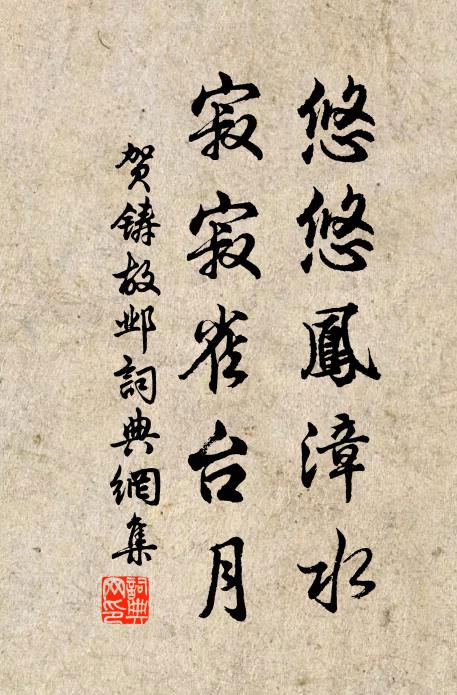 悠悠鳳漳水
寂寂雀台月
贺鑄故邺詞典網集
詞典
网印